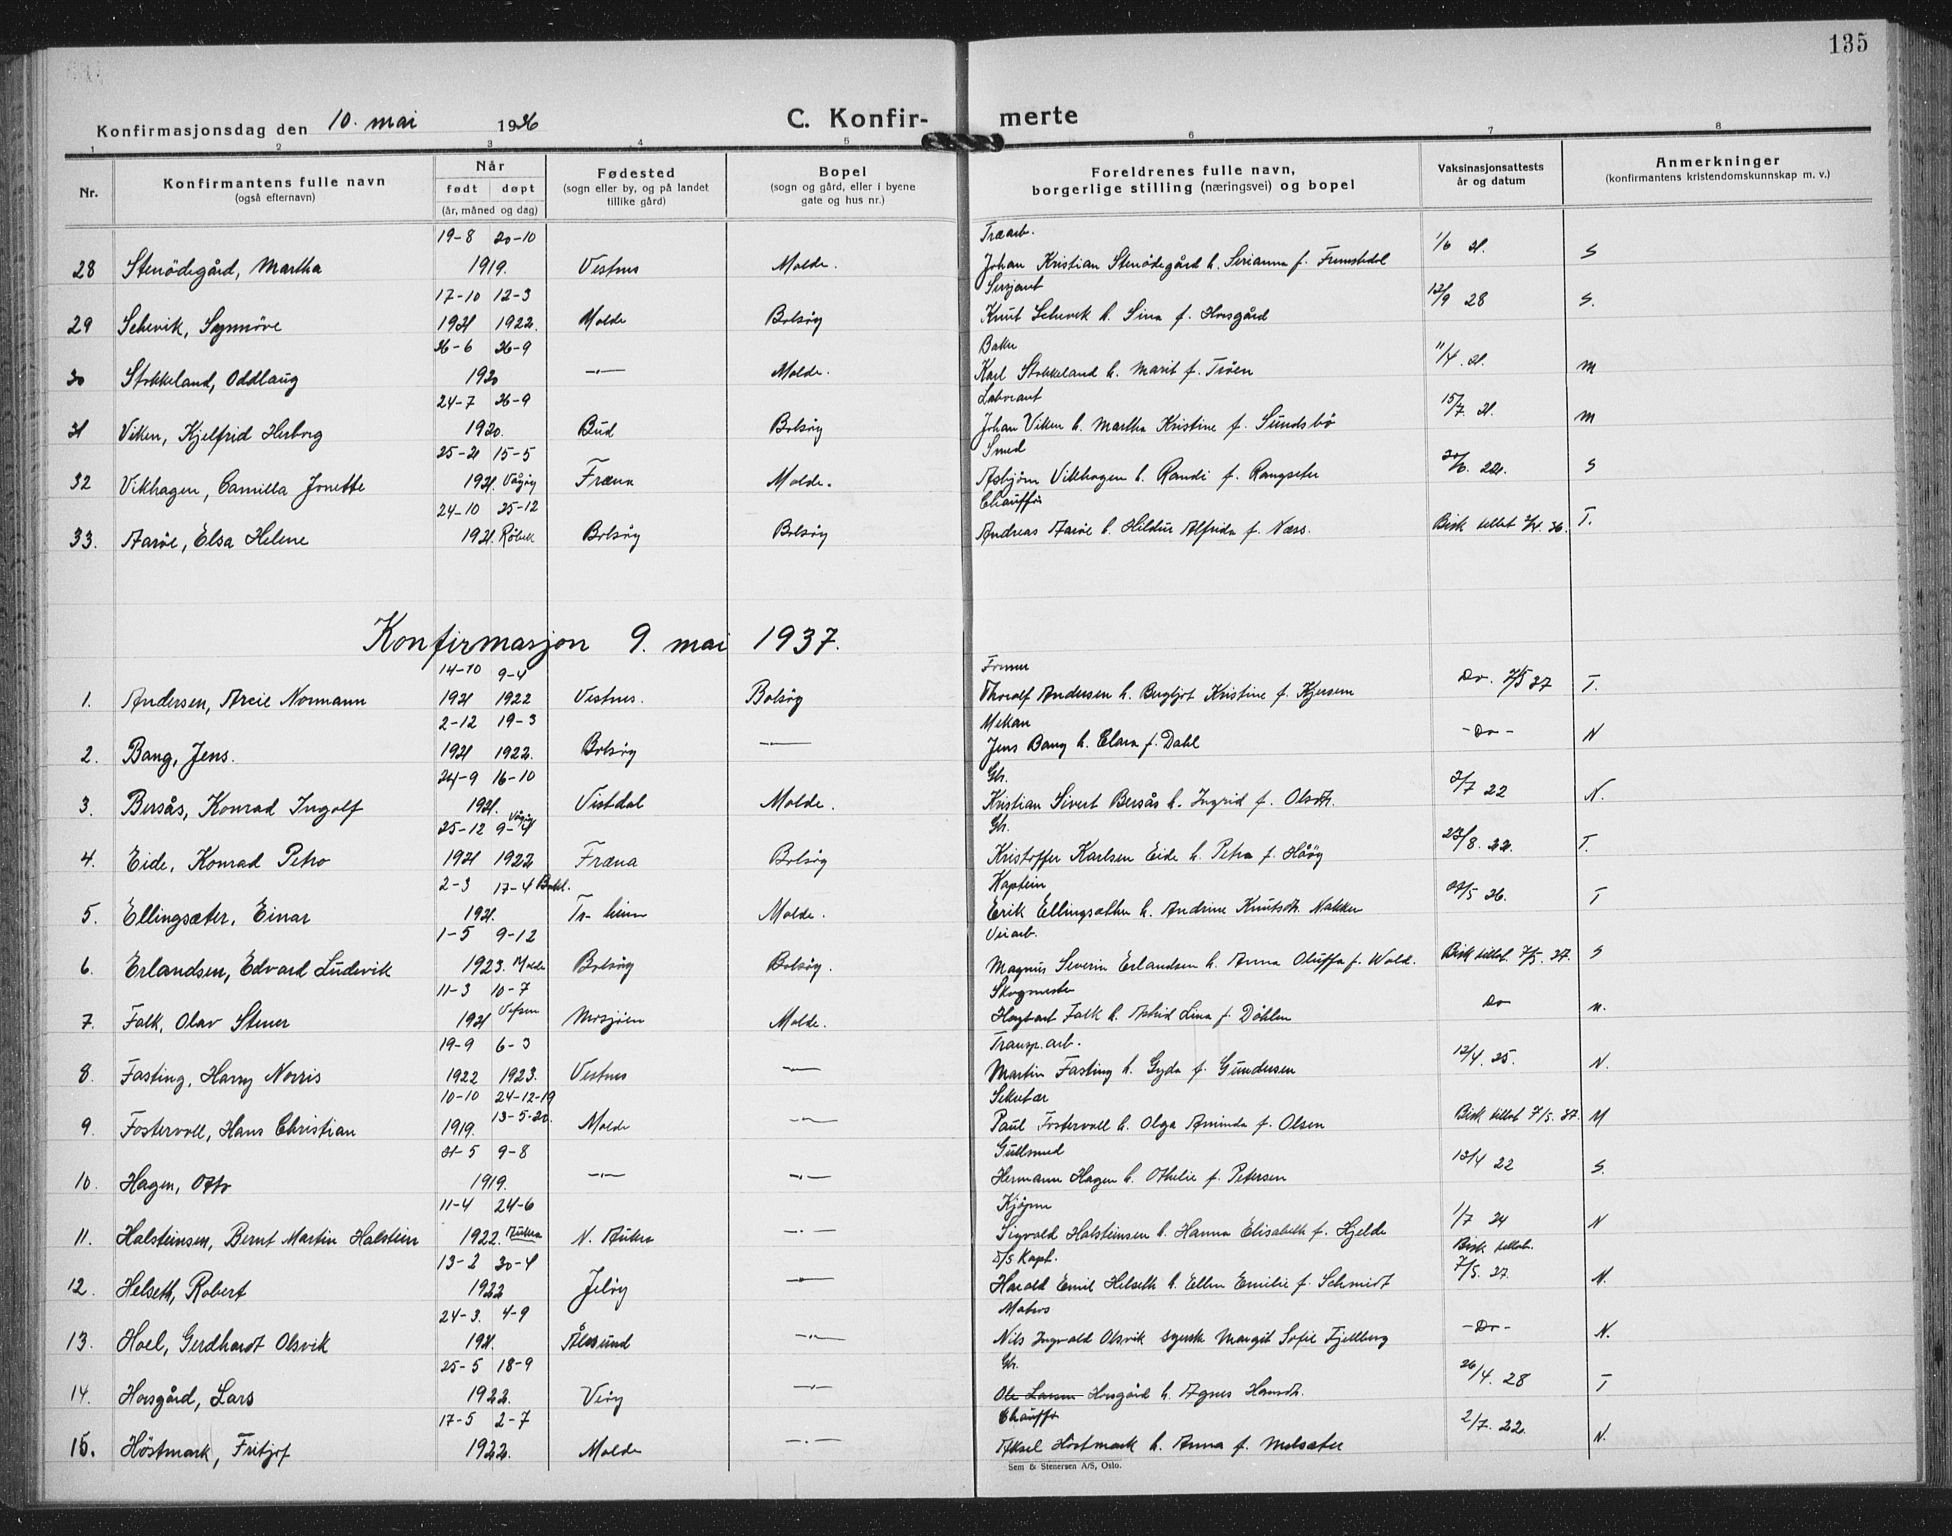 135
Konfirmasjonsdag den 10. mai 1936 C. Konfir- merte
1 2 3 4 5 6 7 8
Nr. Konfirmantens fulle navn (også efternavn) Når født døpt (år, måned og dag) Fødested (sogn eller by, og på landet tillike gård) Bopel (sogn og gård, eller i byene gate og hus nr.) Foreldrenes fulle navn, borgerlige stilling (næringsvei) og bopel Vaksinasjonsattests år og datum Anmerkninger (konfirmantens kristendomskunnskap m. v.)
19-8 20-10 Træarb.
28 Stenödegård, Martha 1919. Vestnes Molde. Johan Kristian Stenödegård h. Serianna f. 1/6 21. S
17-10 12-3 Sersjant
29 Schevik, Synnöve 1921 1922. Molde Bolsöy Knut Schevik h. Sina f. Horsgård 12/9 28 S.
26-6 26-9 Baker
30 Stokkeland, Oddlaug 1920 -"- Molde. Karl Stokkeland h. Marit f. Tröen 11/4 21. M
24-7 26-9 Laborant
31 Viken, Kjelfrid Herborg 1920. Bud Bolsöy Johan Viken h. Martha Kristine f. Sundsbö 15/7 21. M
25-2 15-5 Smed
32 Vikhagen, Camilla Jonette 1921. Vågöy Fræna Molde. Asbjörn Vikhagen h. Randi f. Rangseter 22. S
24-10 25-12 Chaufför
33. Aaröe, Elsa Helene 1921. Röbek Bolsöy Bolsöy Andreas Aaröe h. Hildur Alfrida f. Næss. Bisk tillat 36. T.
Konfirmasjon 9. mai 1937.
14-10 9-4 Former
1. Andersen, Arcie Normann 1921 1922 Vestnes. Bolsöy Thoralf Andersen h. Bergljot Kristine f. Kjersem Do. 7/5 37 T.
2-12 19-3 Mekan
2. Bang, Jens. 1921 1922. Bolsöy -"- Jens Bang h. Clara f. Dahl -Do- N
24-9 16-10 Gb.
3. Bersås, Konrad Ingolf 1921. Vistdal Molde. Kristian Sivert Bersås h. Ingrid f. Olsdtr. 2/7 22 N.
25-12 9-4 Vågöy Gb.
4. Eide, Konrad Petro 1921 1922 Fræna Bolsöy Kristoffer Karlsen Eide h. Petra f. Håöy 23/8. 22. T.
2-3 17-4 Kaptein
5. Ellingsæter, Einar 1921. Tr-heim Molde. Erik Ellingsæther h. Andrine Knutsdtr. Nakken 26. T
1-5 9-12 Veiarb.
6. Erlandsen, Edvard Ludvik 1923. Molde Bolsöy Bolsöy. Magnus Severin Erlandsen h. Anna Oluffa f. Wold. Bisk tillat. 7/5. 37. S
11-3 10-7 Skogmester
7. Falk, Olav Stener 1921 Vefsen Mosjöen Molde. Hagbart Falk h. Astrid Lina f. Döhlen Do N.
19-9 6-3 Transp. arb.
8. Fasting, Harry Norris 1922 1923. Vestnes -"- Martin Fasting h. Gyda f. Gundersen 12/4. 25. N.
10-10 24-12-19 Sekretær
9. Fostervoll, Hans Christian 1919. 13-5-20. Molde -"- Paul Fostervoll h. Olga Aminda f. Olsen Bisk tillat 7/5. 37. M
21-5 9-8 Gullsmed
10. Hagen, Otto 1919. -"- -"- Hermann Hagen h. Othelie f. Petersen 12/4 22 S.
11-4 24-6 Kjöpm
11. Halsteinsen, Bernt Martin Halstein 1922. Aukra N. Aukra -"- Sigvald Halsteinsen h. Hanna Elisabeth f. Hjelde 1/7 24 N
13-2 30-4 D/S Kapt. Bisk tillat.
12. Helseth, Robert 1922 Jelöy -"- Harald Emil Helseth h. Ellen Emilie f. Schmidt 7/5. 37. N.
24-3. 4-9 Matros
13. Hoel, Gerdhardt Olsvik 1921. Ålesund -"- Nils Ingvald Olsvik Margit Sofie Fjellberg -Do- N.
25-5 18-9 Gb.
14. Horsgård, Lars 1922. Veöy -"- Ole Larsen Horsgård h. Agnes Hansdtr. 26/4. 28 T
17-5 2-7 Chaufför
15. Höstmark, Fritjof 1922. Molde -"- Aksel Höstmark h. Anna f. Melsæter 2/7. 22. N.
Sem & Stenersen A/S, Oslo.